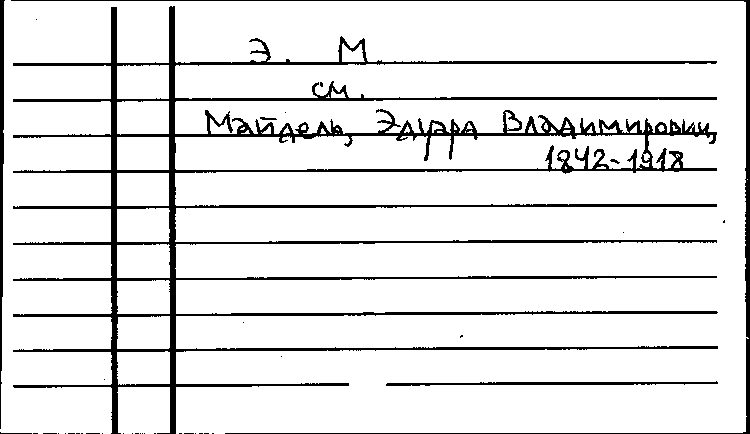 Э. М.
см.
Майдель, Эдуард Владимирович,
1842-1918